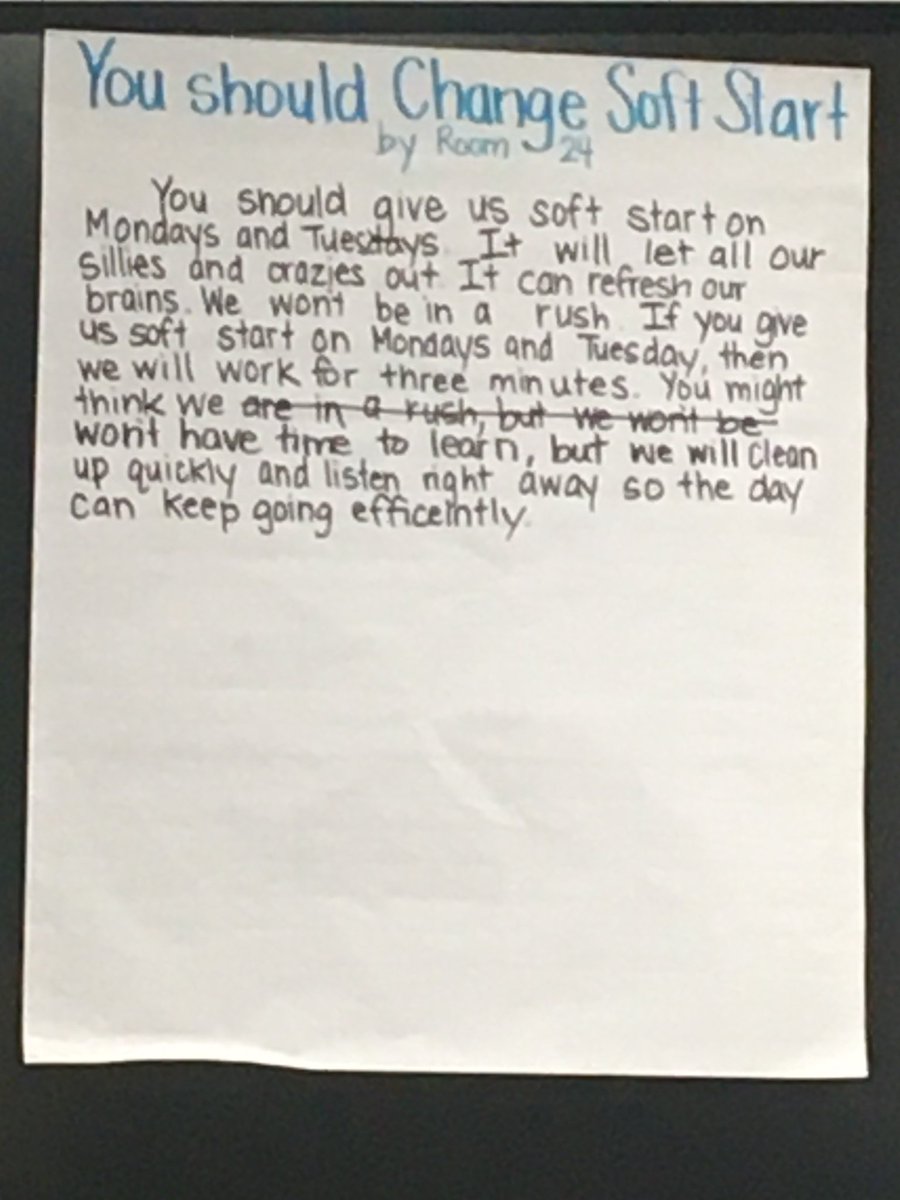 You should Change Soft Start
by Room 24
You should give us soft start on
Mondays and Tuesdays. It will let all our
sillies and crazies out. It can refresh our
brains. We wont be in a rush. If you give
us soft start on Mondays and Tuesday, then
we will work for three minutes. You might
think we are in a rush, but we won't be
won't have time to learn, but we will clean
up quickly and listen right away so the day
can keep going efficeintly.